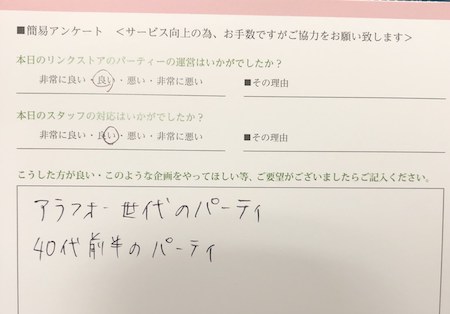 ■簡易アンケート ＜サービス向上の為、お手数ですがご協力をお願い致します＞
本日のリンクストアのパーティーの運営はいかがでしたか？
非常に良い・良い・悪い・非常に悪い ■その理由
本日のスタッフの対応はいかがでしたか？
非常に良い・良い・悪い・非常に悪い ■その理由
こうした方が良い・このような企画をやってほしい等、ご要望がございましたらご記入ください。
アラフォー世代のパーティ
40代前半のパーティ